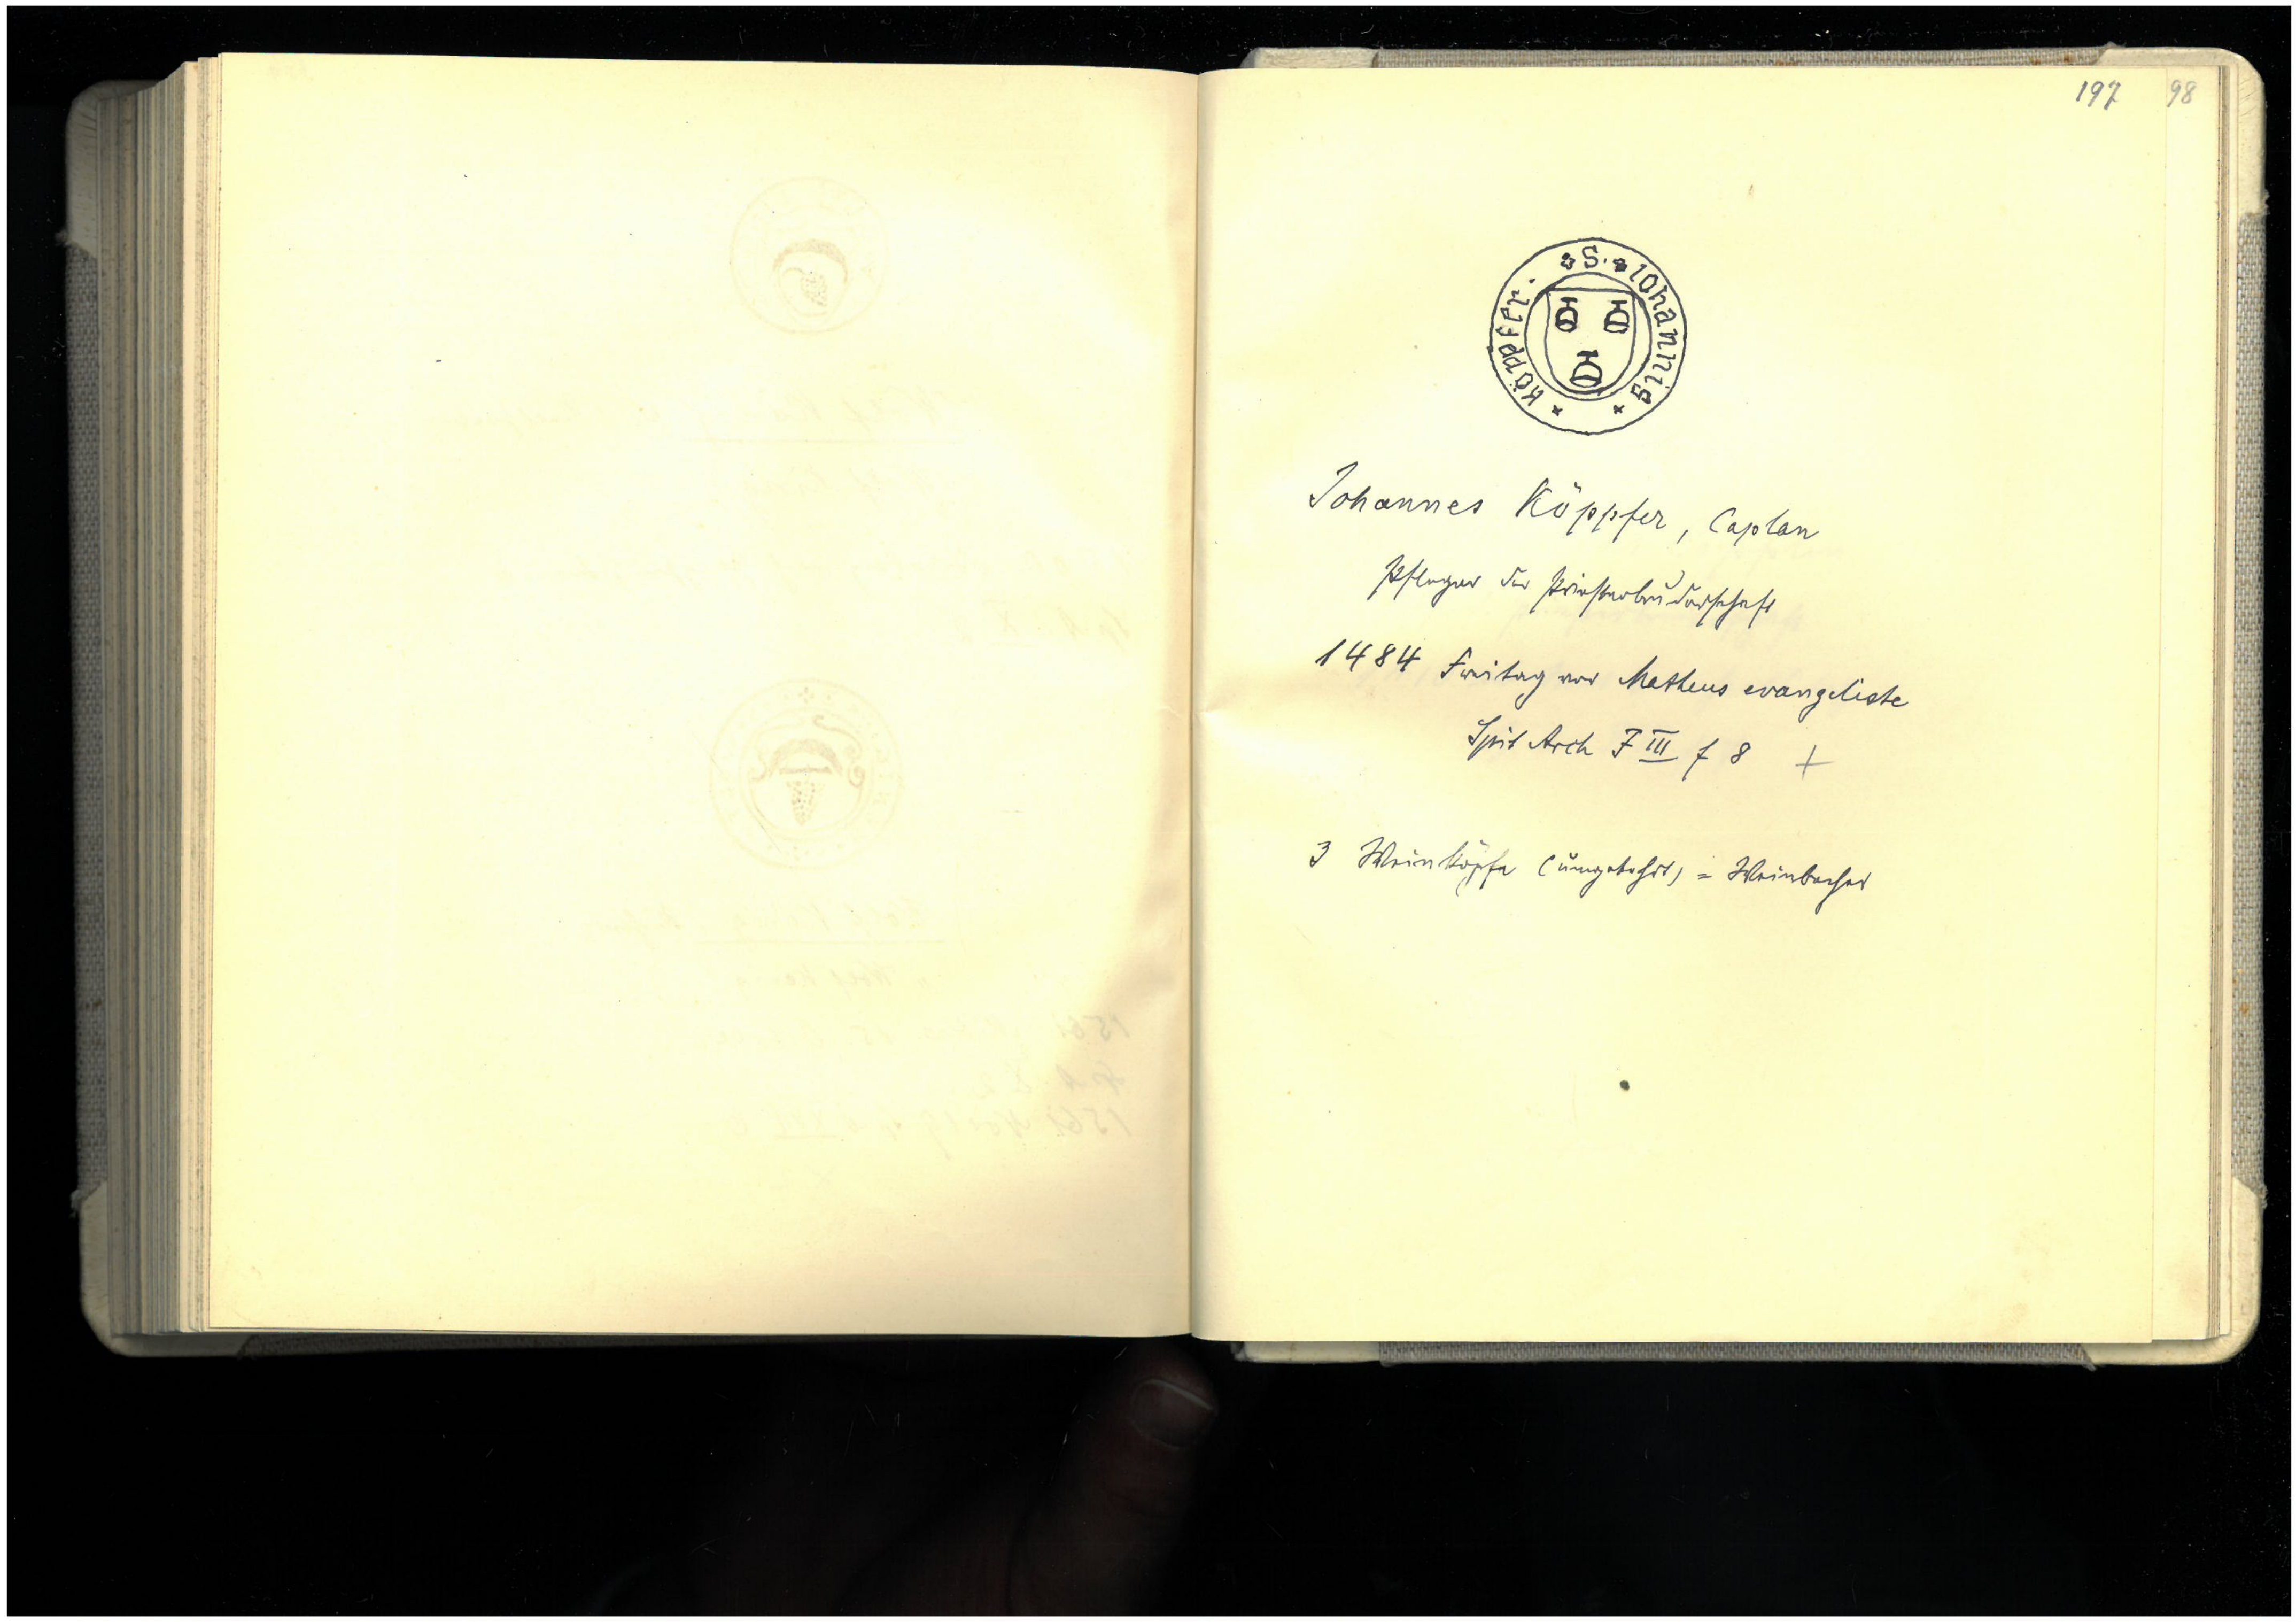 197 98
S. Iohannis
köppfer.
Johannes Köppfer, Caplan
Pfleger der Priesterbruderschaft
1484 Freitag vor Matheus evangeliste
Spit Arch F III f 8 +
3 Weinköpfe (umgekehrt) = Weinbecher